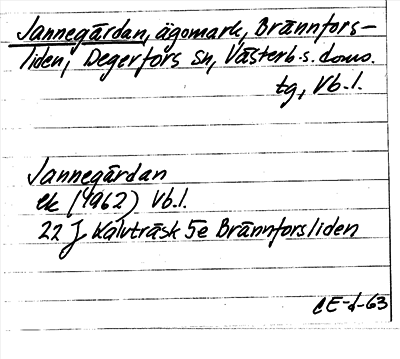 Jannegårdan, ägomark, Brännfors-
liden, Degerfors sn, Västerb.s. doms.
tg, Vb.l.
Jannegårdan
ek (1962) Vb.l.
22 J Kalvträsk 5e Brännforsliden
CE-d-63